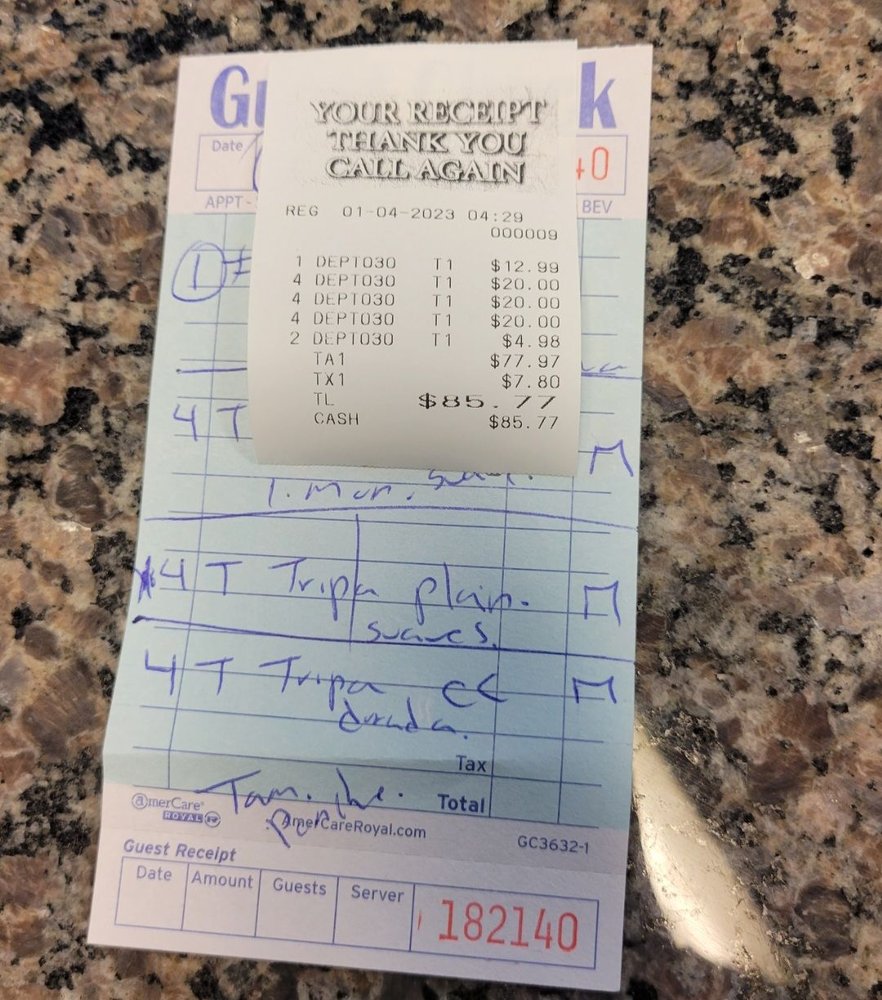 Gu k
Date 40
APPT - BEV
YOUR RECEIPT
THANK YOU
CALL AGAIN
REG 01-04-2023 04:29
000009
1 DEPT030 T1 $12.99
4 DEPT030 T1 $20.00
4 DEPT030 T1 $20.00
4 DEPT030 T1 $20.00
2 DEPT030 T1 $4.98
TA1 $77.97
TX1 $7.80
TL $85.77
CASH $85.77
1 #
4 T
1. Mon.
4 T Tripa plain.
suaves.
4 T Tripa CC
dorada.
Tax
Total
AmerCare
ROYAL
AmerCareRoyal.com
GC3632-1
Guest Receipt
Date Amount Guests Server 182140